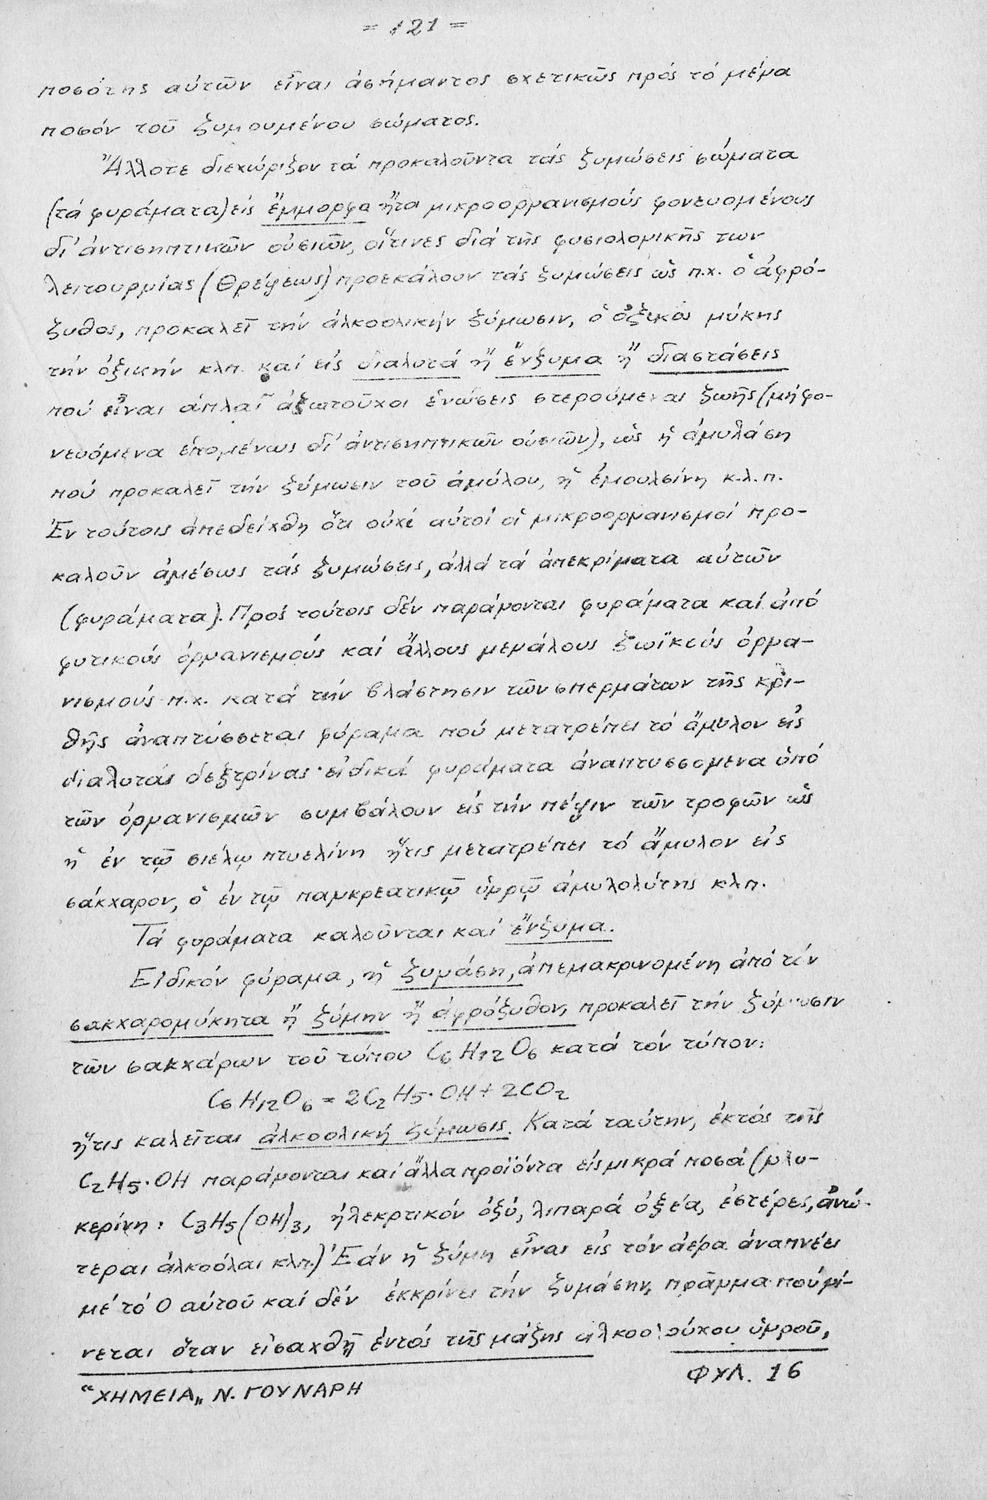 = 121 =
ποσότης αὐτῶν εἶναι ἀσήμαντος σχετικῶς πρός τό μέγα
ποσόν τοῦ ζυμουμένου σώματος.
Ἄλλοτε διεχώριζον τά προκαλοῦντα τάς ζυμώσεις σώματα
(τά φυράματα) εἰς ἔμμορφα ἤτοι μικροοργανισμούς φονευομένους
δι' ἀντισηπτικῶν οὐσιῶν, οἵτινες διά τῆς φυσιολογικῆς των
λειτουργίας (θρέψεως) προεκάλουν τάς ζυμώσεις ὡς π.χ. ὁ ἀφρό-
ζυθος, προκαλεῖ τήν ἀλκοολικήν ζύμωσιν, ὁ ὀξικός μύκης
τήν ὀξικήν κλπ. καί εἰς διαλυτά ἤ ἔνζυμα ἤ διαστάσεις
πού εἶναι ἁπλαῖ ἀζωτοῦχοι ἑνώσεις στερούμεναι ζωῆς (μή φο-
νευόμενα ἑπομένως δι' ἀντισηπτικῶν οὐσιῶν), ὡς ἡ ἀμυλάση
πού προκαλεῖ τήν ζύμωσιν τοῦ ἀμύλου, ἡ ἐμουλσίνη κ.λ.π.
Ἐν τούτοις ἀπεδείχθη ὅτι οὐχί αὐτοί οἱ μικροοργανισμοί προ-
καλοῦν ἀμέσως τάς ζυμώσεις, ἀλλά τά ἀπεκρίματα αὐτῶν
(φυράματα). Πρός τούτοις δέν παράγονται φυράματα καί ἀπό
φυτικούς ὀργανισμούς καί ἄλλους μεγάλους ζωϊκούς ὀργα-
νισμούς π.χ. κατά τήν βλάστησιν τῶν σπερμάτων τῆς κρι-
θῆς ἀναπτύσσεται φύραμα πού μετατρέπει τό ἄμυλον εἰς
διαλυτάς δεξτρίνας· εἰδικά φυράματα ἀναπτυσσόμενα ὑπό
τῶν ὀργανισμῶν συμβάλουν εἰς τήν πέψιν τῶν τροφῶν ὡς
ἡ ἐν τῷ σιέλῳ πτυελίνη ἥτις μετατρέπει τό ἄμυλον εἰς
σάκχαρον, ὁ ἐν τῷ παγκρεατικῷ ὑγρῷ ἀμυλολύτης κλπ.
Τά φυράματα καλοῦνται καί ἔνζυμα.
Εἰδικόν φύραμα, ἡ ζυμάση, ἀπεμακρινομένη ἀπό τόν
σακχαρομύκητα ἤ ζύμην ἤ ἀφρόζυθον, προκαλεῖ τήν ζύμωσιν
τῶν σακχάρων τοῦ τύπου C₆H₁₂O₆ κατά τόν τύπον:
C₆H₁₂O₆ = 2C₂H₅·OH + 2CO₂
ἥτις καλεῖται ἀλκοολική ζύμωσις. Κατά ταύτην, ἐκτός τῆς
C₂H₅·OH παράγονται καί ἄλλα προϊόντα εἰς μικρά ποσά (γλυ-
κερίνη: C₃H₅(OH)₃, ἠλεκρτικόν ὀξύ, λιπαρά ὀξέα, ἐστέρες, ἀνώ-
τεραι ἀλκοόλαι κλπ.) Ἐάν ἡ ζύμη εἶναι εἰς τόν ἀέρα ἀναπνέει
μέ τό O αὐτοῦ καί δέν ἐκκρίνει τήν ζυμάσην, πρᾶγμα πού γί-
νεται ὅταν εἰσαχθῇ ἐντός τῆς μάζης ἀλκοολούχου ὑγροῦ,
“ΧΗΜΕΙΑ„ Ν. ΓΟΥΝΑΡΗ
ΦΥΛ. 16